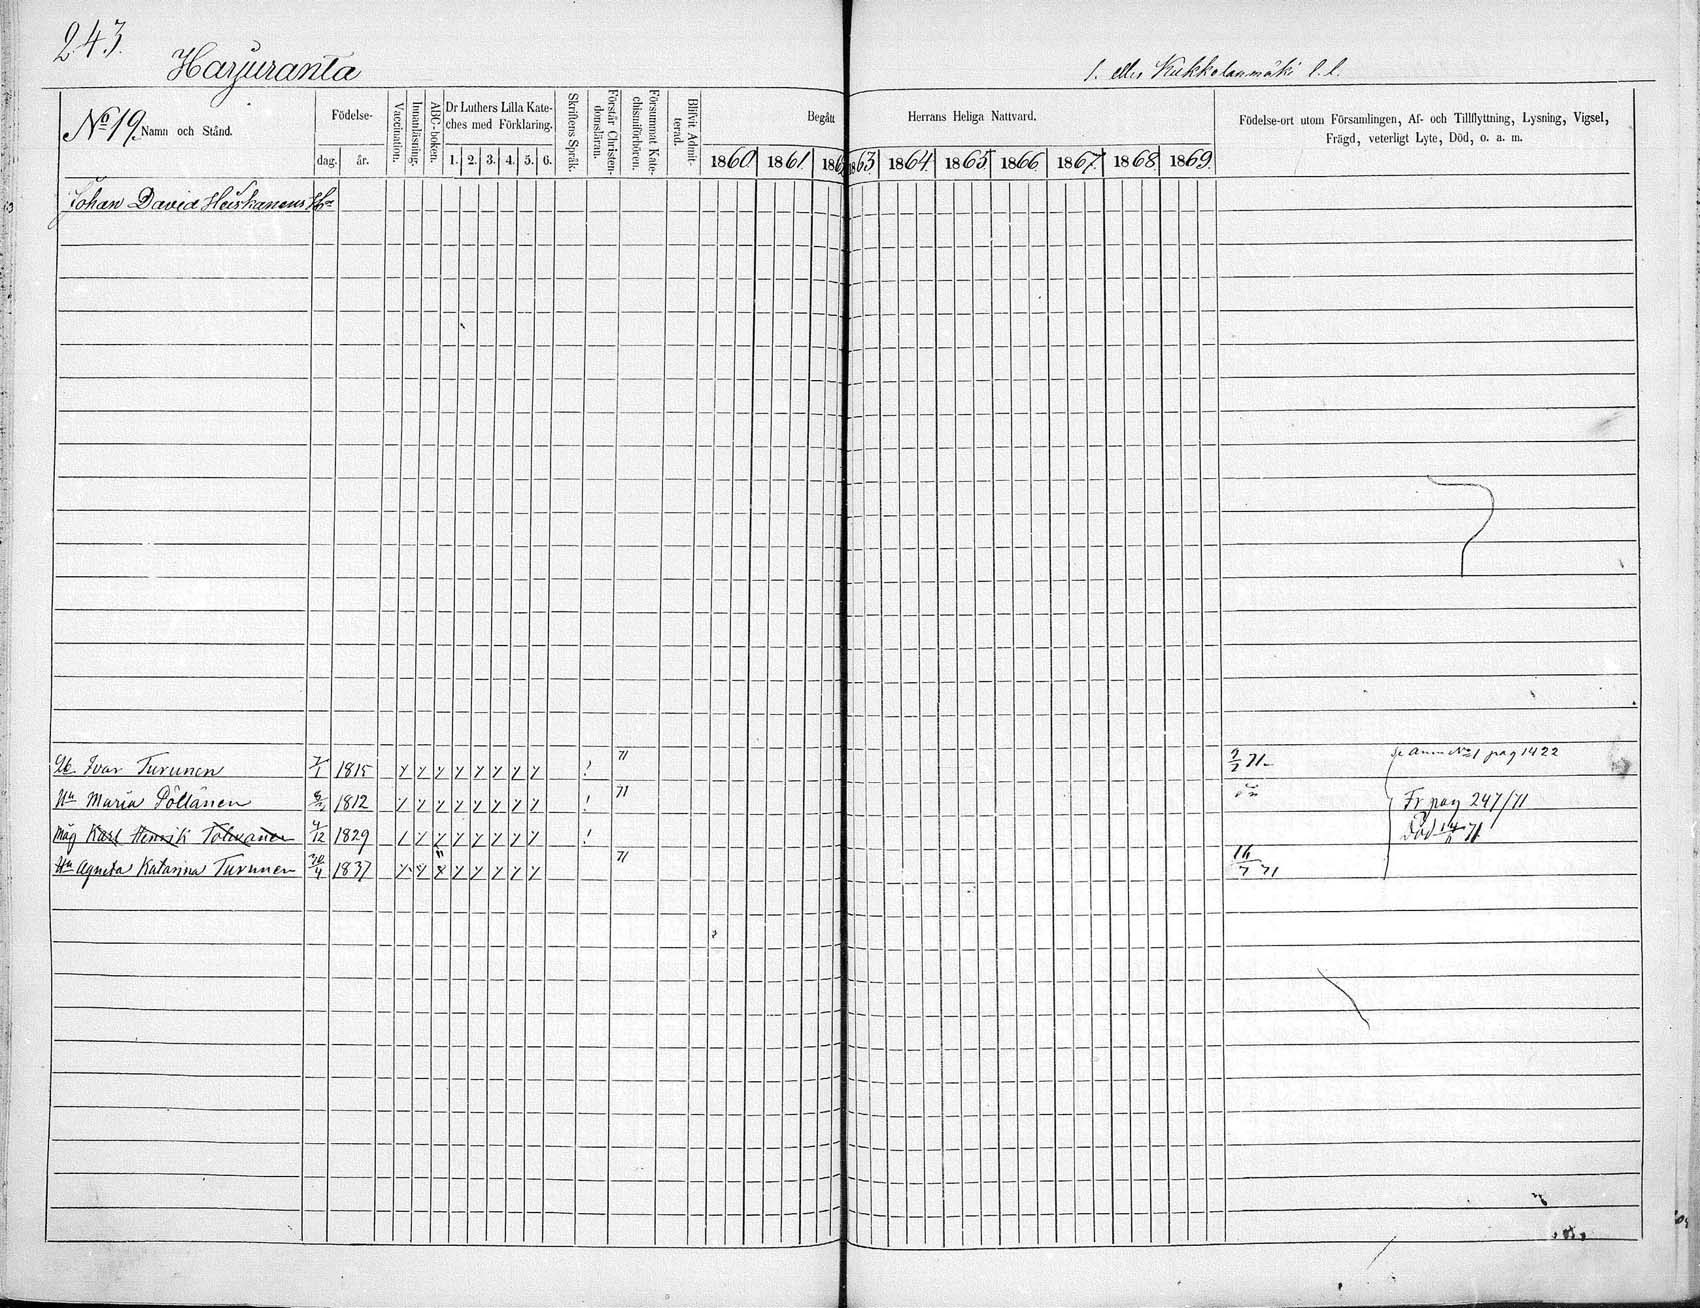 243.
Harjuranta
1. eller Kukkolanmäki l.l.
No 19. Namn och Stånd.
Födelse-
dag. år.
Vaccination.
Innanläsning.
ABC-boken.
Dr Luthers Lilla Kate-
ches med Förklaring.
1. 2. 3. 4. 5. 6.
Skriftens Språk.
Förstår Christen-
domsläran.
Försummat Kate-
chismiförhören.
Blifvit Admit-
terad.
Begått Herrans Heliga Nattvard.
1860 1861. 186 63. 1864. 1865 1866 1867. 1868 1869.
Födelse-ort utom Församlingen, Af- och Tillflyttning, Lysning, Vigsel,
Frägd, veterligt Lyte, Död, o. a. m.
Johan David Heiskanens
Ivar Turunen 7/1 1815 71 71 pag 1422
Hu Maria Pöllänen 1812 71 Fr pag 247/71
Måg Karl Henrik Tolvanen 4/12 1829 Död 71
Hu Agneta Katarina Turunen 30/4 1837 71 16/7 71